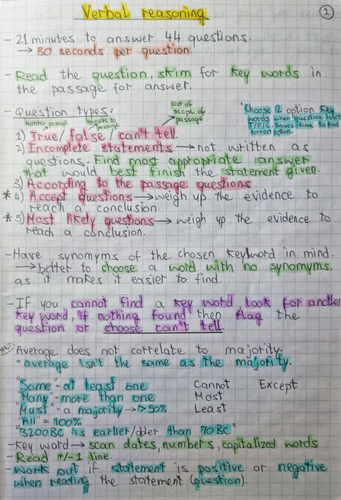 Verbal reasoning
1
- 21 minutes to answer 44 questions.
→ 30 seconds per question.
- Read the question, skim for key words in
the passage for answer.
- Question types:
out of
scope of
passage
1) True/False/can't tell.
Choose 2 option key
words when question
2) Incomplete statements → not written as
questions. Find most appropriate answer
that would best finish the statement given.
3) According to the passage questions
* 4) Accept questions → weigh up the evidence to
reach a conclusion
* 5) Most likely questions → weigh up the evidence to
reach a conclusion.
- Have synonyms of the chosen keyword in mind.
→ better to choose a word with no synonyms
as it makes it easier to find.
- IF you cannot find a key word look for another
key word, if nothing found then flag the
question or choose can't tell.
Average does not correlate to majority.
- average isn't the same as the majority.
"Some" - at least one
Cannot Except
"Many" - more than one
Most
"Must" = a majority → >50%
Least
"All" = 100%
"3200BC has earlier/older than 110 BC"
- Key word → scan dates, numbers, capitalized words
- Read +/- 1 line.
- Work out if statement is positive or negative
when reading the statement (question).